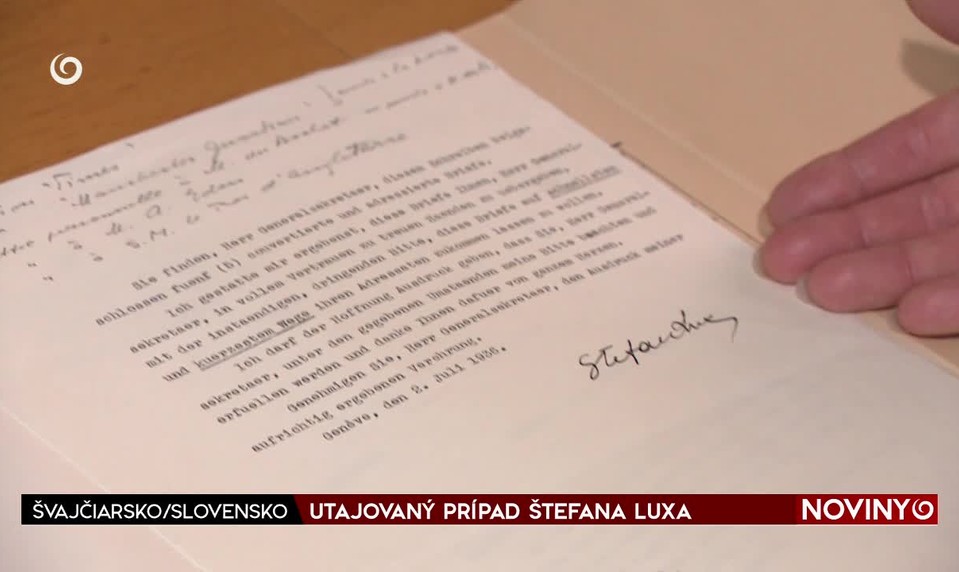 "Times"
"Manchester Guardian"
A. Eden
S.M. le Roi d'Angleterre
Sie finden, Herr Generalsekretaer, diesem Schreiben beige-
schlossen fuenf (5) couvertierte und adressierte Briefe.
Ich gestatte mir ergebenst, diese Briefe Ihnen, Herr General-
sekretaer, in vollem Vertrauen zu treuen Haenden zu uebergeben,
mit der instaendigen, dringenden Bitte, diese Briefe auf schnellstem
und kuerzestem Wege ihren Adressaten zukommen lassen zu wollen.
Ich darf der Hoffnung Ausdruck geben, dass Sie, Herr General-
sekretaer, unter den gegebenen Umstaenden meine Bitte beachten und
erfuellen werden und danke Ihnen dafuer von ganzem Herzen.
Genehmigen Sie, Herr Generalsekretaer, den Ausdruck meiner
aufrichtig ergebenen Verehrung.
Genève, den 2. Juli 1936.
Stefan Lux
ŠVAJČIARSKO/SLOVENSKO UTAJOVANÝ PRÍPAD ŠTEFANA LUXA NOVINY